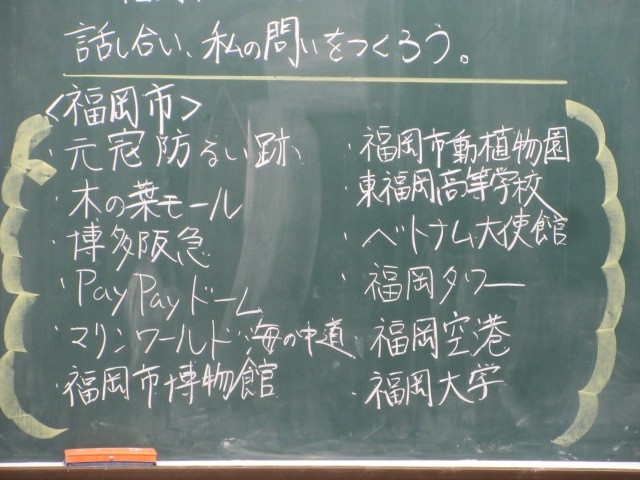 話し合い、私の問いをつくろう。
<福岡市>
・元寇防るい跡
・木の葉モール
・博多阪急
・PayPayドーム
・マリンワールド海の中道
・福岡市博物館
・福岡市動植物園
・東福岡高等学校
・ベトナム大使館
・福岡タワー
・福岡空港
・福岡大学